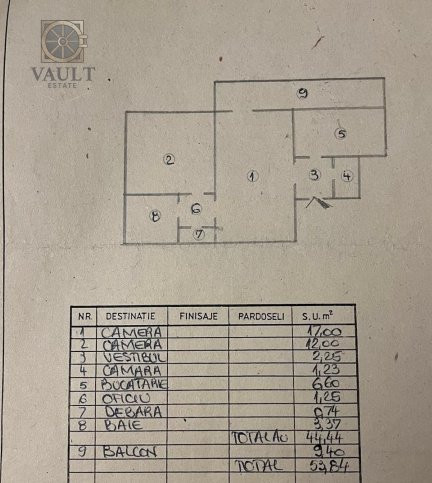 VAULT
ESTATE
9
5
2
1
3
4
6
8
7
NR. DESTINATIE FINISAJE PARDOSELI S.U. m²
1 CAMERA 17,00
2 CAMERA 12,00
3 VESTIBUL 2,25
4 CAMARA 1,23
5 BUCATARIE 6,60
6 OFICIU 1,25
7 DEBARA 0,74
8 BAIE 3,37
TOTAL AU 44,44
9 BALCON 9,40
TOTAL 53,84